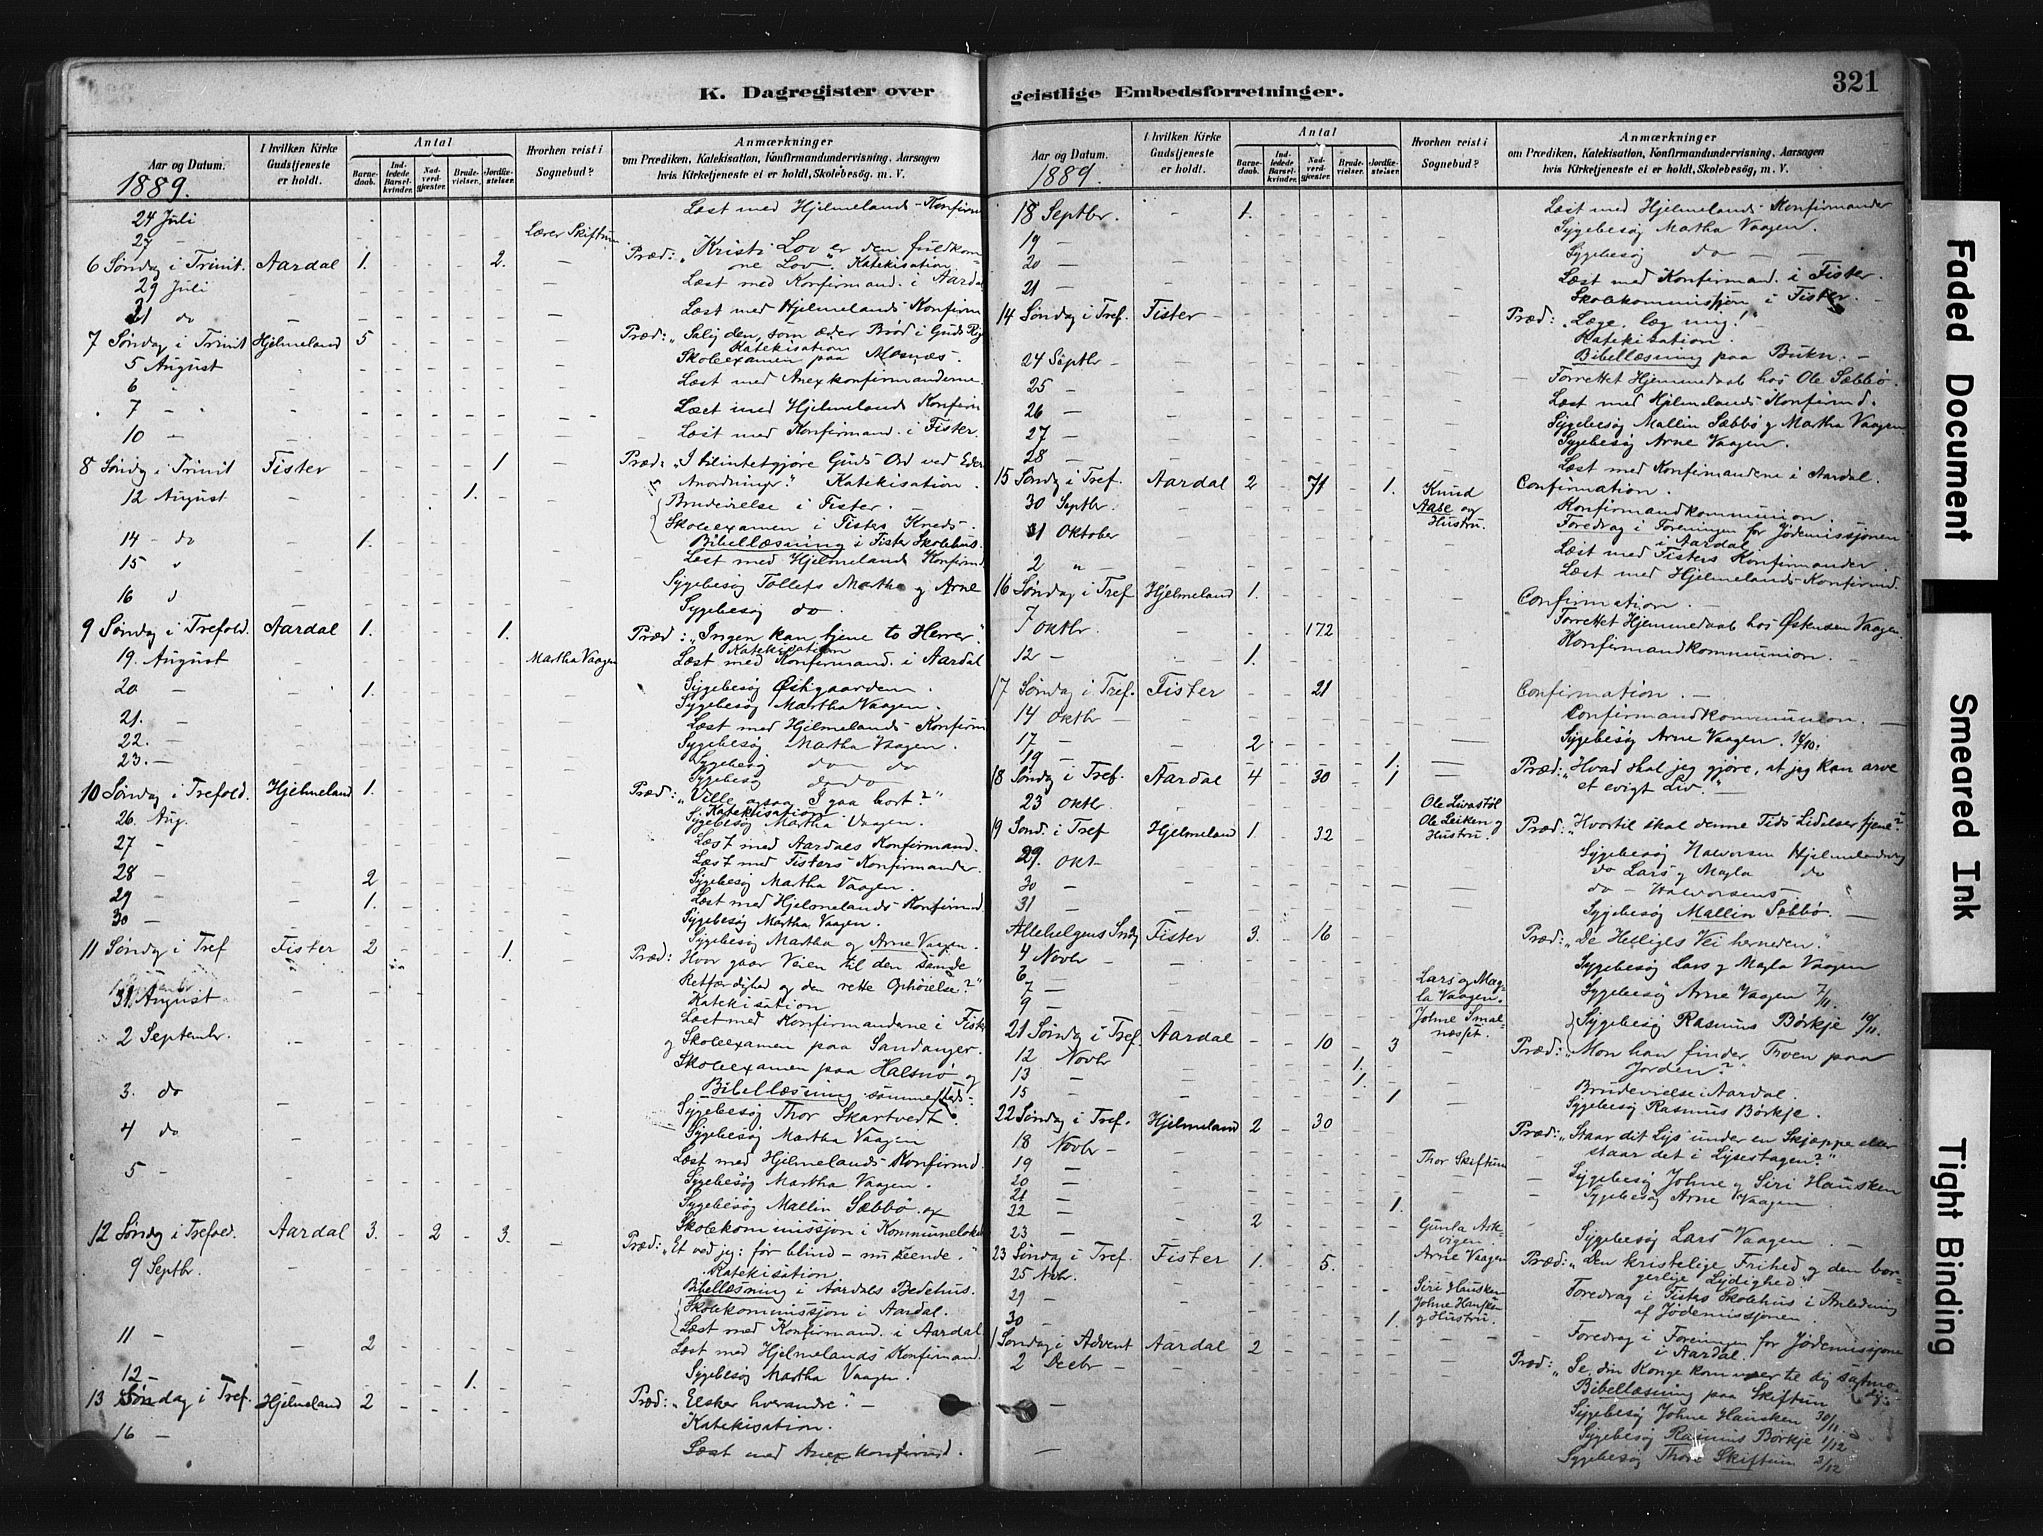 K. Dagregister over
Aar og Datum.
1889.
I hvilken Kirke Gudstjeneste er holdt.
Antal
Barnedaab.
Indledede Barselkvinder.
Nadverdgjester.
Brudevielser.
Jordfæstelser.
Hvorhen reist i Sognebud?
Anmærkninger
om Prædiken, Katekisation, Konfirmandundervisning, Aarsagen
hvis Kirketjeneste ei er holdt, Skolebesøg, m. V.
24 Juli Læst med Hjelmelands Konfirm
27 - Lærer Skiftun
6 Søndag i Trinit. Aardal 1. 2. Præd: "Kristi Lov er den fuldkom-
ne Lov". Katekisation
29 Juli Læst med Konfirmand. i Aardal
31 do Læst med Hjelmelands Konfirm
7 Søndag i Trinit Hjelmeland 5 Præd: "Salig den, som æder Brød i Guds Rig
Katekisation
5 August Skoleexamen paa Mosnæs -
6 " Læst med Anexkonfirmanderne.
7 - Læst med Hjelmelands Konfirm
10 - Læst med Konfirmand. i Fister.
8 Søndag i Trinit Fister 1 Præd: "I tilintetgjøre Guds Ord ved Eders
Anordninger." Katekisation.
12 August 1. Brudevielse i Fister -
Skoleexamen i Fisters Kreds -
14 - do 1. Bibellæsning i Fister Skolehus.
15 " Læst med Hjelmelands Konfirmd
16 " Sygebesøg Tollefs Martha og Arne
Sygebesøg do.
9 Søndag i Trefold. Aardal 1. 1. Præd: "Ingen kan tjene to Herrer."
Katekisation
19. August Martha Vaagen Læst med Konfirmand. i Aardal
20 - 1. Sygebesøg Østigaarden.
21. - Sygebesøg Martha Vaagen.
22. - Læst med Hjelmelands Konfirm
23. - Sygebesøg Martha Vaagen.
Sygebesøg do do
Sygebesøg do do
10 Søndag i Trefold. Hjelmeland 1. Præd: "Ville ogsaa I gaa bort?"
Katekisation
26. Aug. Sygebesøg Martha Vaagen.
27 - Læst med Aardals Konfirmand.
Læst med Fisters Konfirmander
28 - 2 Sygebesøg Martha Vaagen.
29 - 1. Læst med Hjelmelands Konfirmd
30 - Sygebesøg Martha Vaagen.
Sygebesøg Martha og Arne Vaagen.
11 Søndag i Tref Fister 2 1. Præd: "Hvor gaar Veien til den sande
Retfærdighed og den rette Ophøielse?"
31 August Katekisation
2 Septembr. Læst med Konfirmandene i Fister
og Skoleexamen paa Sandanger.
Skoleexamen paa Halsnø og
3. do Bibellæsning sammesteds.
Sygebesøg Thor Skartvedt.
4 do Sygebesøg Martha Vaagen
Læst med Hjelmelands Konfirmd.
5 - Sygebesøg Martha Vaagen.
Sygebesøg Mallin Sæbbø.
Skolekommissjon i Kommunelokal
12 Søndag i Trefold. Aardal 3. 2 3. Præd: "Et ved jeg: før blind - nu seende."
9 Septbr. Katekisation
Bibellæsning i Aardals Bedehus.
Skolekommissjon i Aardal.
Læst med Konfirmand. i Aardal
11 - 2 Læst med Hjelmelands Konfirmand
12 - 1. Sygebesøg Martha Vaagen.
13 Søndag i Tref. Hjelmeland 2 Præd: "Elsker hverandre". -
Katekisation.
16 - Læst med Anexkonfirmd.
321
geistlige Embedsforretninger.
Aar og Datum.
1889.
I hvilken Kirke Gudstjeneste er holdt.
Antal
Barnedaab.
Indledede Barselkvinder.
Nadverdgjester.
Brudevielser.
Jordfæstelser.
Hvorhen reist i Sognebud?
Anmærkninger
om Prædiken, Katekisation, Konfirmandundervisning, Aarsagen
hvis Kirketjeneste ei er holdt, Skolebesøg, m. V.
18 Septbr. 1. Læst med Hjelmelands Konfirmander
19 - Sygebesøg Martha Vaagen.
20 - Sygebesøg do
21 - Læst med Konfirmand. i Fister.
Skolekommissjon i Fister.
14 Søndag i Tref. Fister Præd: "Læge, læg mig!"
Katekisation.
24 Septbr Bibellæsning paa Bukn. -
25 - Forrettet Hjemmedaab hos Ole Sæbbø.
26 - Læst med Hjelmelands Konfirmd.
27 - Sygebesøg Mallin Sæbbø og Martha Vaagen
28 - Sygebesøg Arne Vaagen.
Læst med Konfirmandene i Aardal.
15 Søndag i Tref. Aardal 2 71 1. Knud Aase og Hustru. Confirmation.
30 Septbr. Konfirmandkommunion.
Foredrag i Foreningen for Jødemissjonen
i Aardal
1 Oktober Læst med Fisters Konfirmander.
2 " Læst med Hjelmelands Konfirmd
16 Søndag i Tref Hjelmeland 1. Confirmation.
7 Oktbr. 172 Forrettet Hjemmedaab hos Østensen Vaagen.
12 - 1. Konfirmandkommunion.
17 Søndag i Tref. Fister 21 Confirmation.
14 Oktbr Confirmandkommunion.
17 - 2 Sygebesøg Arne Vaagen. 14/10.
19 - 1.
18 Søndag i Tref. Aardal 4 30 1 Præd: "Hvad skal jeg gjøre, at jeg kan arve
et evigt Liv."
23 Oktbr. Ole Livastøl
19 Sønd. i Tref Hjelmeland 1. 32 Ole Leiken og Hustru. Præd: "Hvortil skal denne Tids Lidelser tjene?"
29. Okt. Sygebesøg Halvorsen Hjelmelandsvaag
30 - do Lars og Magla do
31 - do - Halvorsens -
Sygebesøg Mallin Sæbbø. -
Allehelgens Sndg Fister 3. 16 Præd: "De Helliges Vei herneden."
4 Novbr Sygebesøg Lars og Magla Vaagen
6 - Lars og Magla Vaagen.
7 - Sygebesøg Arne Vaagen 7/11.
9 - Johne Smalnæsset. Sygebesøg Rasmus Børkje 10/11.
21 Søndag i Tref. Aardal 10 3 Præd: "Mon han finder Troen paa
Jorden?"
12 Novbr 1.
13 - 1. Brudevielse i Aardal.
15 - 1 Sygebesøg Rasmus Børkje.
22 Søndag i Tref. Hjelmeland 2 30 Præd: "Staar dit Lys under en Skjæppe eller
staar det i Lysestagen?"
18 Novbr
19 - Thor Skiftun
20 - Sygebesøg Johne og Siri Hausken
21 - Sygebesøg Arne Vaagen.
22 - 1.
23 - 2 Gunla Askvigen. Sygebesøg Lars Vaagen.
23 Søndag i Tref. Fister 1. 5. Arne Vaagen Præd: "Den kristelige Frihed og den bor-
gerlige Lydighed"
25 Nvbr. Foredrag i Fisters Skolehus i Anledning
af Jødemissjonen.
29 - Siri Hausken
30 - 1. Johne Hausken og Hustru.
1 Søndag i Advent Aardal 2 Foredrag i Foreningen for Jødemissjonen
i Aardal.
2 Decbr - Præd: "Se, din Konge kommer til dig sagtmo-
dig."
Bibellæsning paa Skiftun
Sygebesøg Johne Hausken 30/11
Sygebesøg Rasmus Børkje 1/12
Sygebesøg Thor Skiftun 3/12
Faded Document
Smeared Ink
Tight Binding